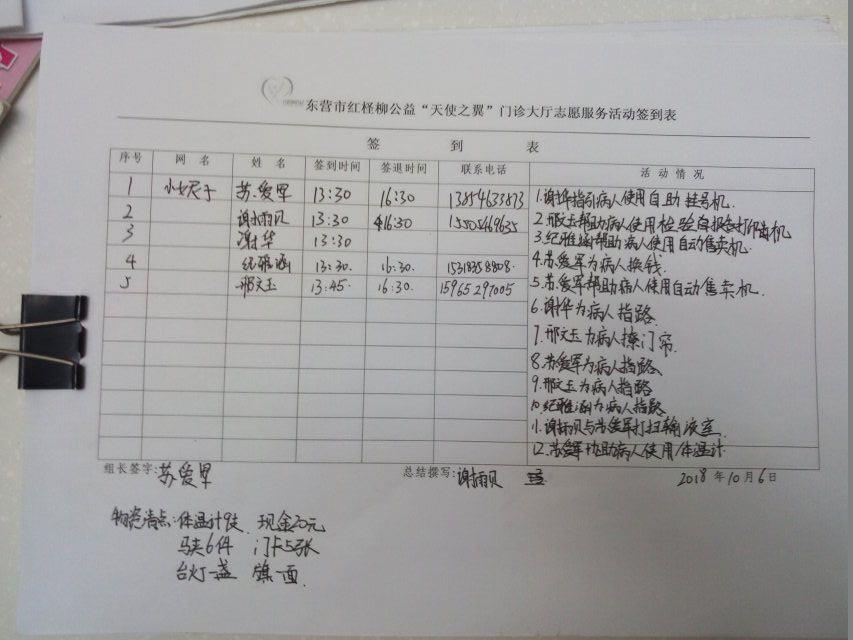 东营市红柽柳公益“天使之翼”门诊大厅志愿服务活动签到表
签 到 表
序号 网 名 姓 名 签到时间 签退时间 联系电话 活 动 情 况
1 苏爱军 13:30 16:30 13854633873
2 谢雨贝 13:30 16:30 15505469635
3 谢华 13:30
4 纪雅涵 13:30. 16:30. 15318358808.
5 邢文玉 13:45. 16:30. 15965297005
1.谢华指引病人使用自助挂号机.
2.邢文玉帮助病人使用检验自报告打印机
3.纪雅涵帮助病人使用自动售卖机.
4.苏爱军为病人换钱.
5.苏爱军帮助病人使用自动售卖机.
6.谢华为病人指路.
7.邢文玉为病人撩门帘.
8.苏爱军为病人指路.
9.邢文玉为病人指路
10.纪雅涵为病人指路
11.谢雨贝与苏爱军打扫输液室.
12.苏爱军协助病人使用体温计
组长签字:苏爱军 总结撰写:谢雨贝 2018年10月6日
物资清点:体温计9支 现金20元
马夹6件 门卡5张
台灯一盏 镜一面.